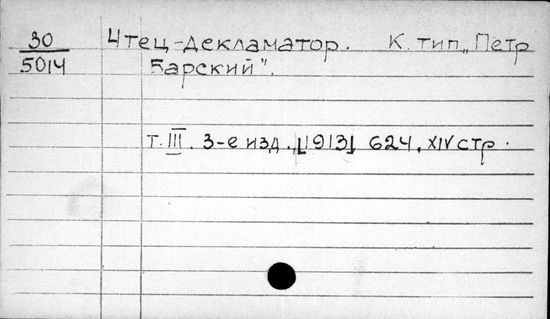 30 Чтец-декламатор. К. тип. „Петр
5014 Барский".
т. III. 3-е изд. [1913] 624, XIV стр.